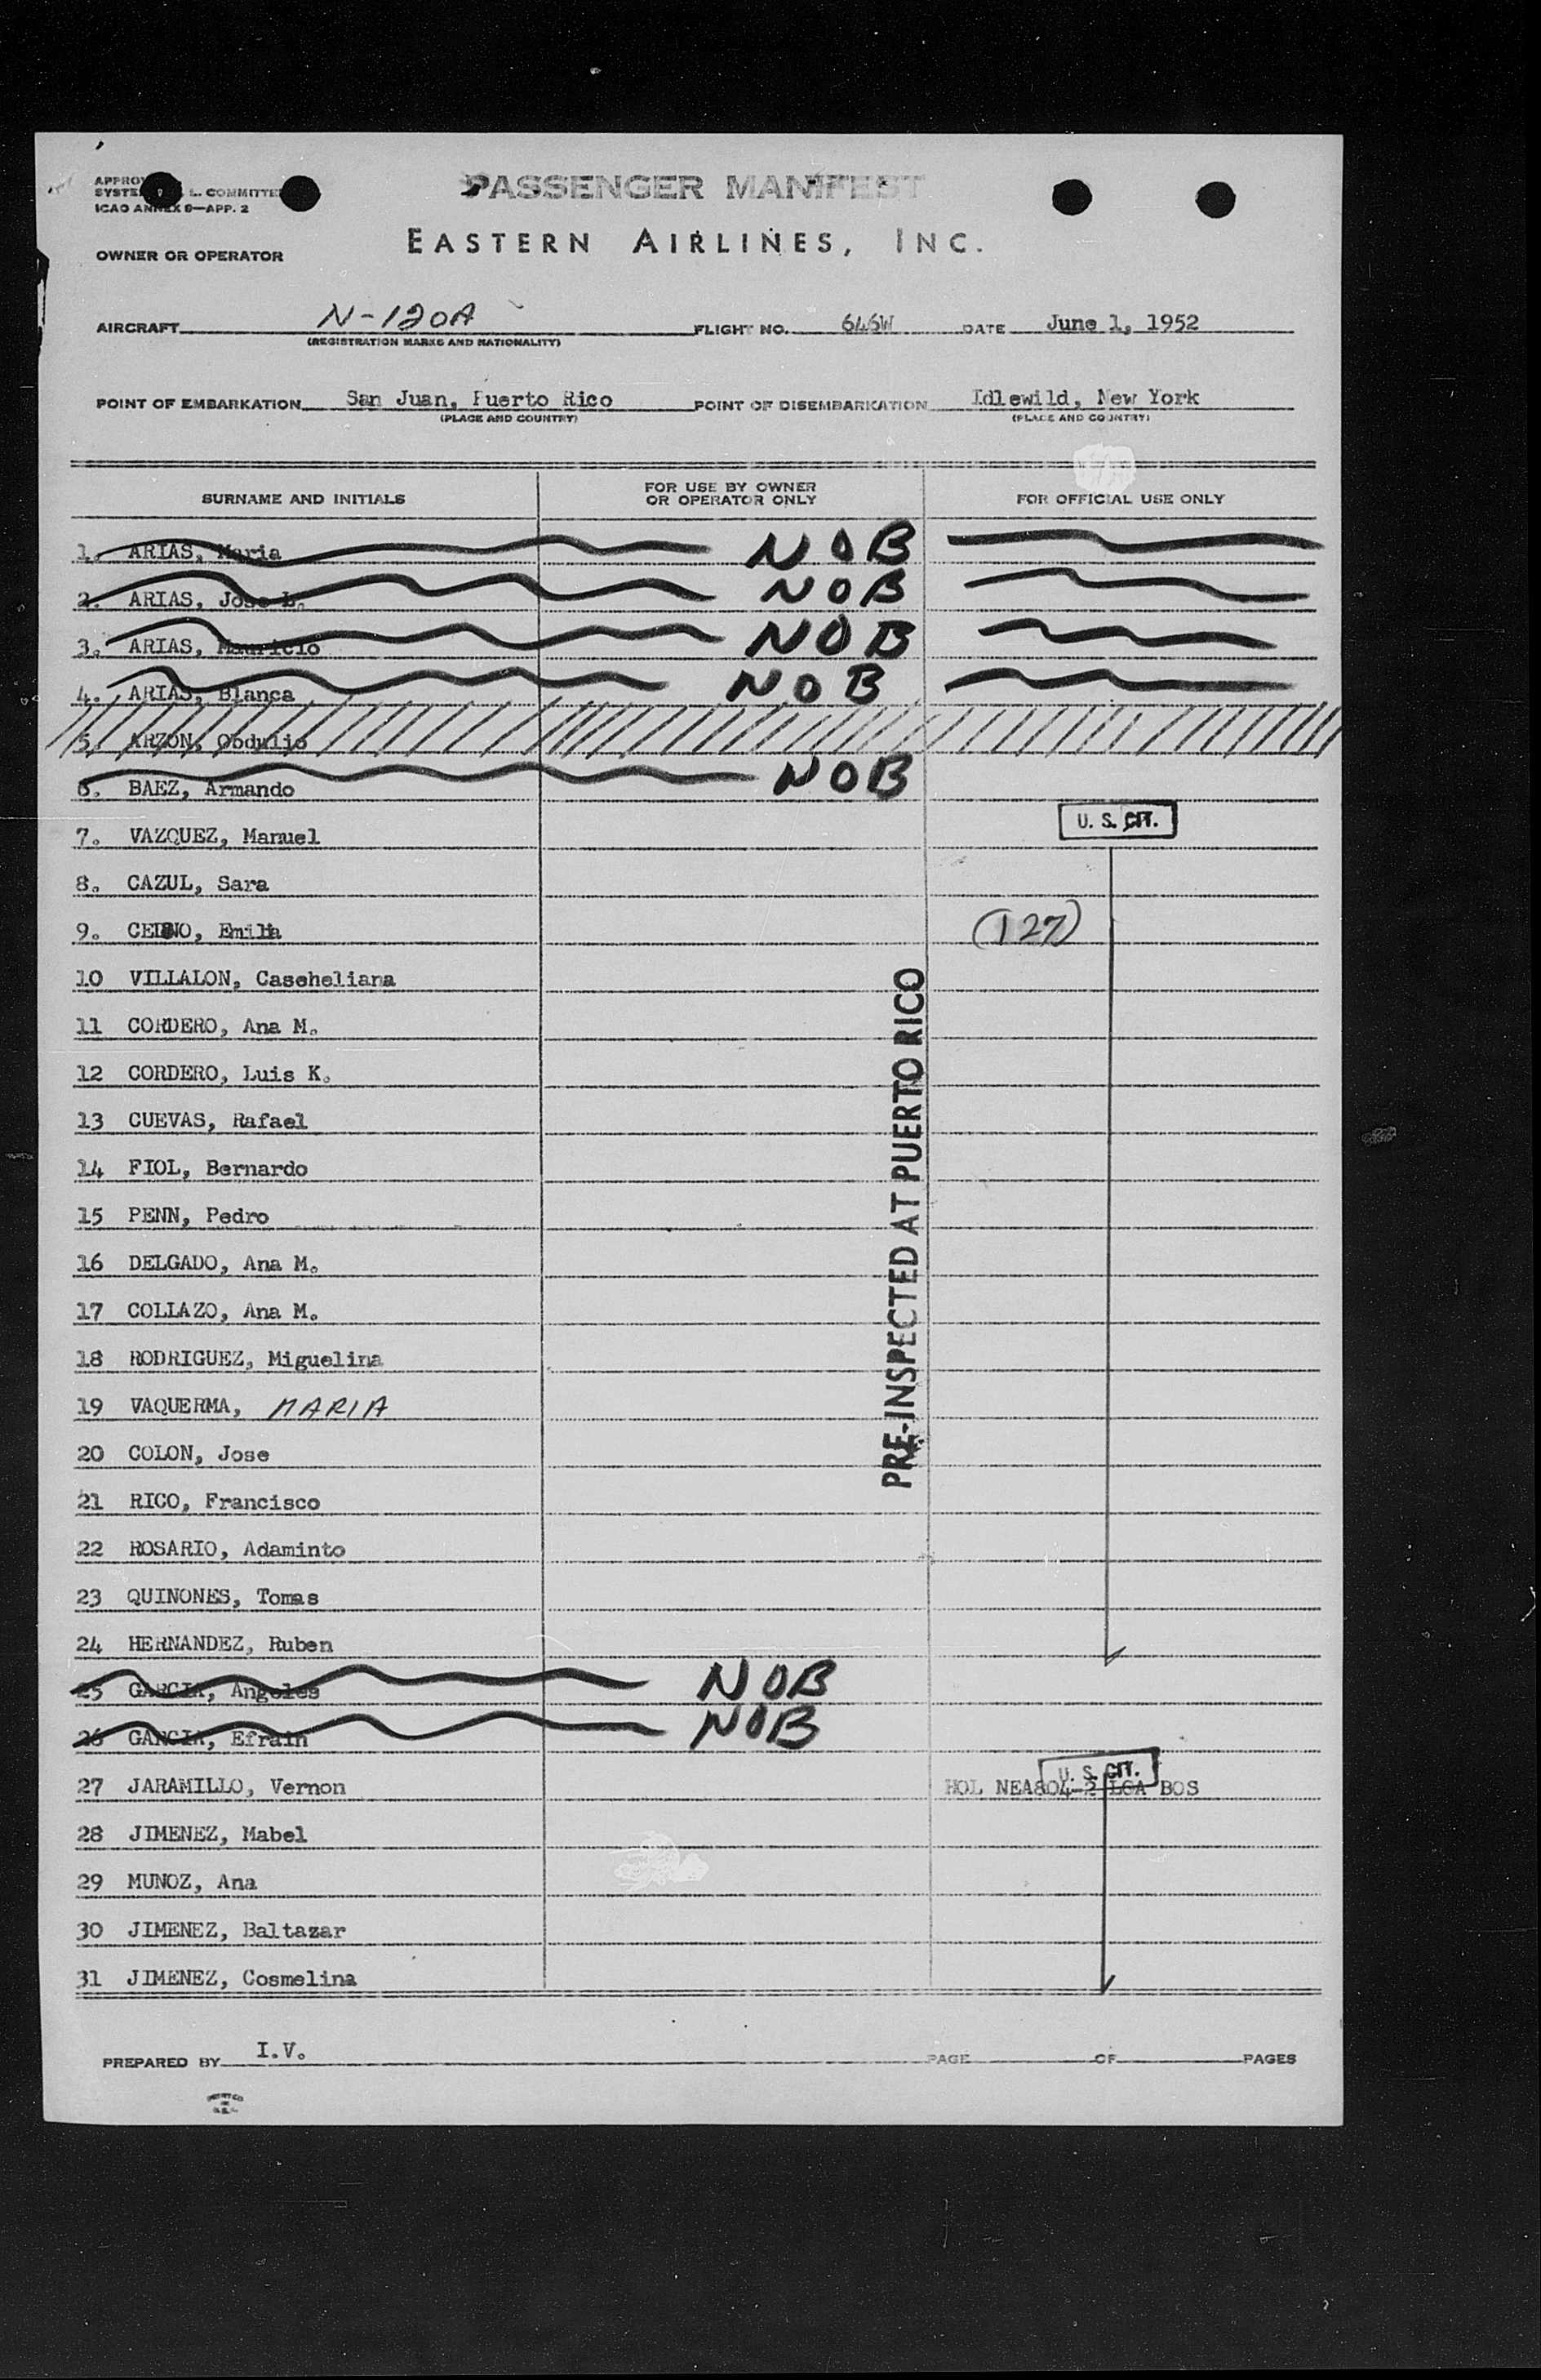 PASSENGER MANIFEST
L. COMMITTEE
ICAO ANNEX 9—APP. 2
EASTERN AIRLINES, INC.
OWNER OR OPERATOR
AIRCRAFT N-120A FLIGHT NO. 646W DATE June 1, 1952
(REGISTRATION MARKS AND NATIONALITY)
POINT OF EMBARKATION San Juan, Puerto Rico POINT OF DISEMBARKATION Idlewild, New York
(PLACE AND COUNTRY) (PLACE AND COUNTRY)
SURNAME AND INITIALS FOR USE BY OWNER OR OPERATOR ONLY FOR OFFICIAL USE ONLY
1. ARIAS, Maria NOB
2. ARIAS, Jose L. NOB
3. ARIAS, Mauricio NOB
4. ARIAS, Blanca NOB
5. ARZON, Obdulio
6. BAEZ, Armando NOB
U. S. CIT.
7. VAZQUEZ, Manuel
8. CAZUL, Sara
9. Emilia (127)
10 VILLALON, Caseheliana
11 CORDERO, Ana M.
12 CORDERO, Luis K.
13 CUEVAS, Rafael
14 FIOL, Bernardo
15 PENN, Pedro
16 DELGADO, Ana M.
17 COLLAZO, Ana M.
18 RODRIGUEZ, Miguelina
19 VAQUERMA, MARIA
20 COLON, Jose
21 RICO, Francisco
22 ROSARIO, Adaminto
23 QUINONES, Tomas
24 HERNANDEZ, Ruben
PRE-INSPECTED AT PUERTO RICO
25 GARCIA, Angeles NOB
26 GARCIA, Efrain NOB
U. S. CIT.
27 JARAMILLO, Vernon HOL NEA804-2 LGA BOS
28 JIMENEZ, Mabel
29 MUNOZ, Ana
30 JIMENEZ, Baltazar
31 JIMENEZ, Cosmelina
PREPARED BY I.V. PAGE OF PAGES